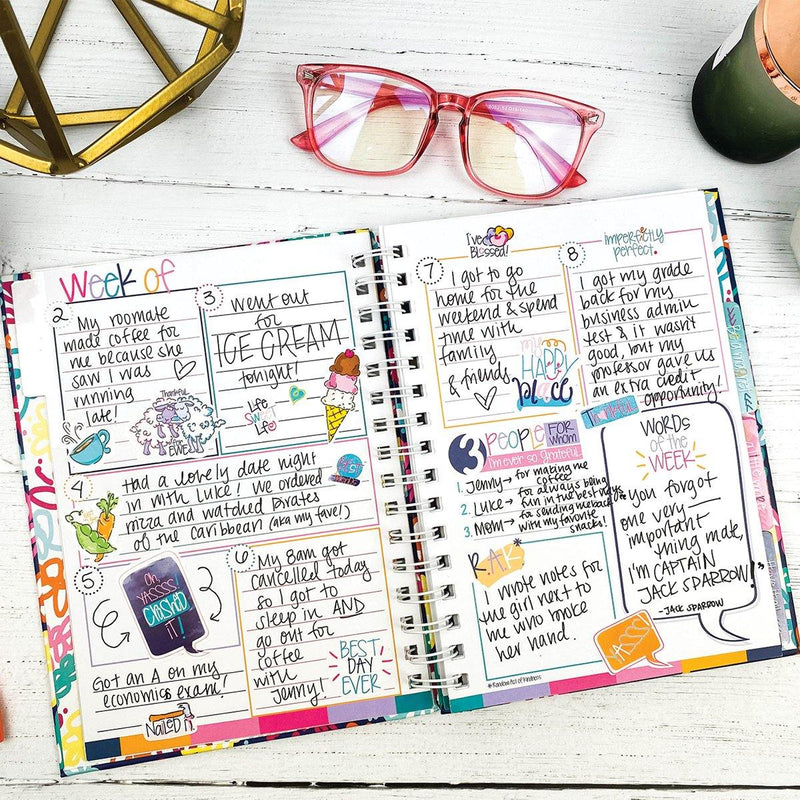 Week of
2
My roommate
made coffee for
me because she
saw I was
running
late!
Thankful
EWE
3
Went out
for
ICE CREAM
tonight!
Life
Sweet
Life
4
Had a lovely date night
in with Luke! We ordered
pizza and watched Pirates
of the Caribbean (aka my fave!)
5
OH,
YASSSS!
CRUSHED
IT!
Got an A on my
economics exam!
Nailed it.
6
My 8am got
cancelled today
so I got to
sleep in AND
go out for
coffee
with
Jenny!
BEST
DAY
EVER
I've
Blessed!
7
I got to go
home for the
weekend & spend
time with
family
& friends
my
HAPPY
place
8
imperfectly
perfect.
I got my grade
back for my
business admin
test & it wasn't
good, but my
professor gave us
an extra credit
opportunity!
Thankful
3 PEOPLE FOR
WHOM
I'm ever so grateful
1. Jenny → for making me
coffee
2. Luke → for always being
fun in the best ways
3. Mom → for sending me back
with my favorite
snacks!
RAK*
I wrote notes for
the girl next to
me who broke
her hand.
* Random Act of Kindness
WORDS
of the
WEEK
"You forgot
one very
important
thing mate,
I'M CAPTAIN
JACK SPARROW!"
- JACK SPARROW
YASSS!